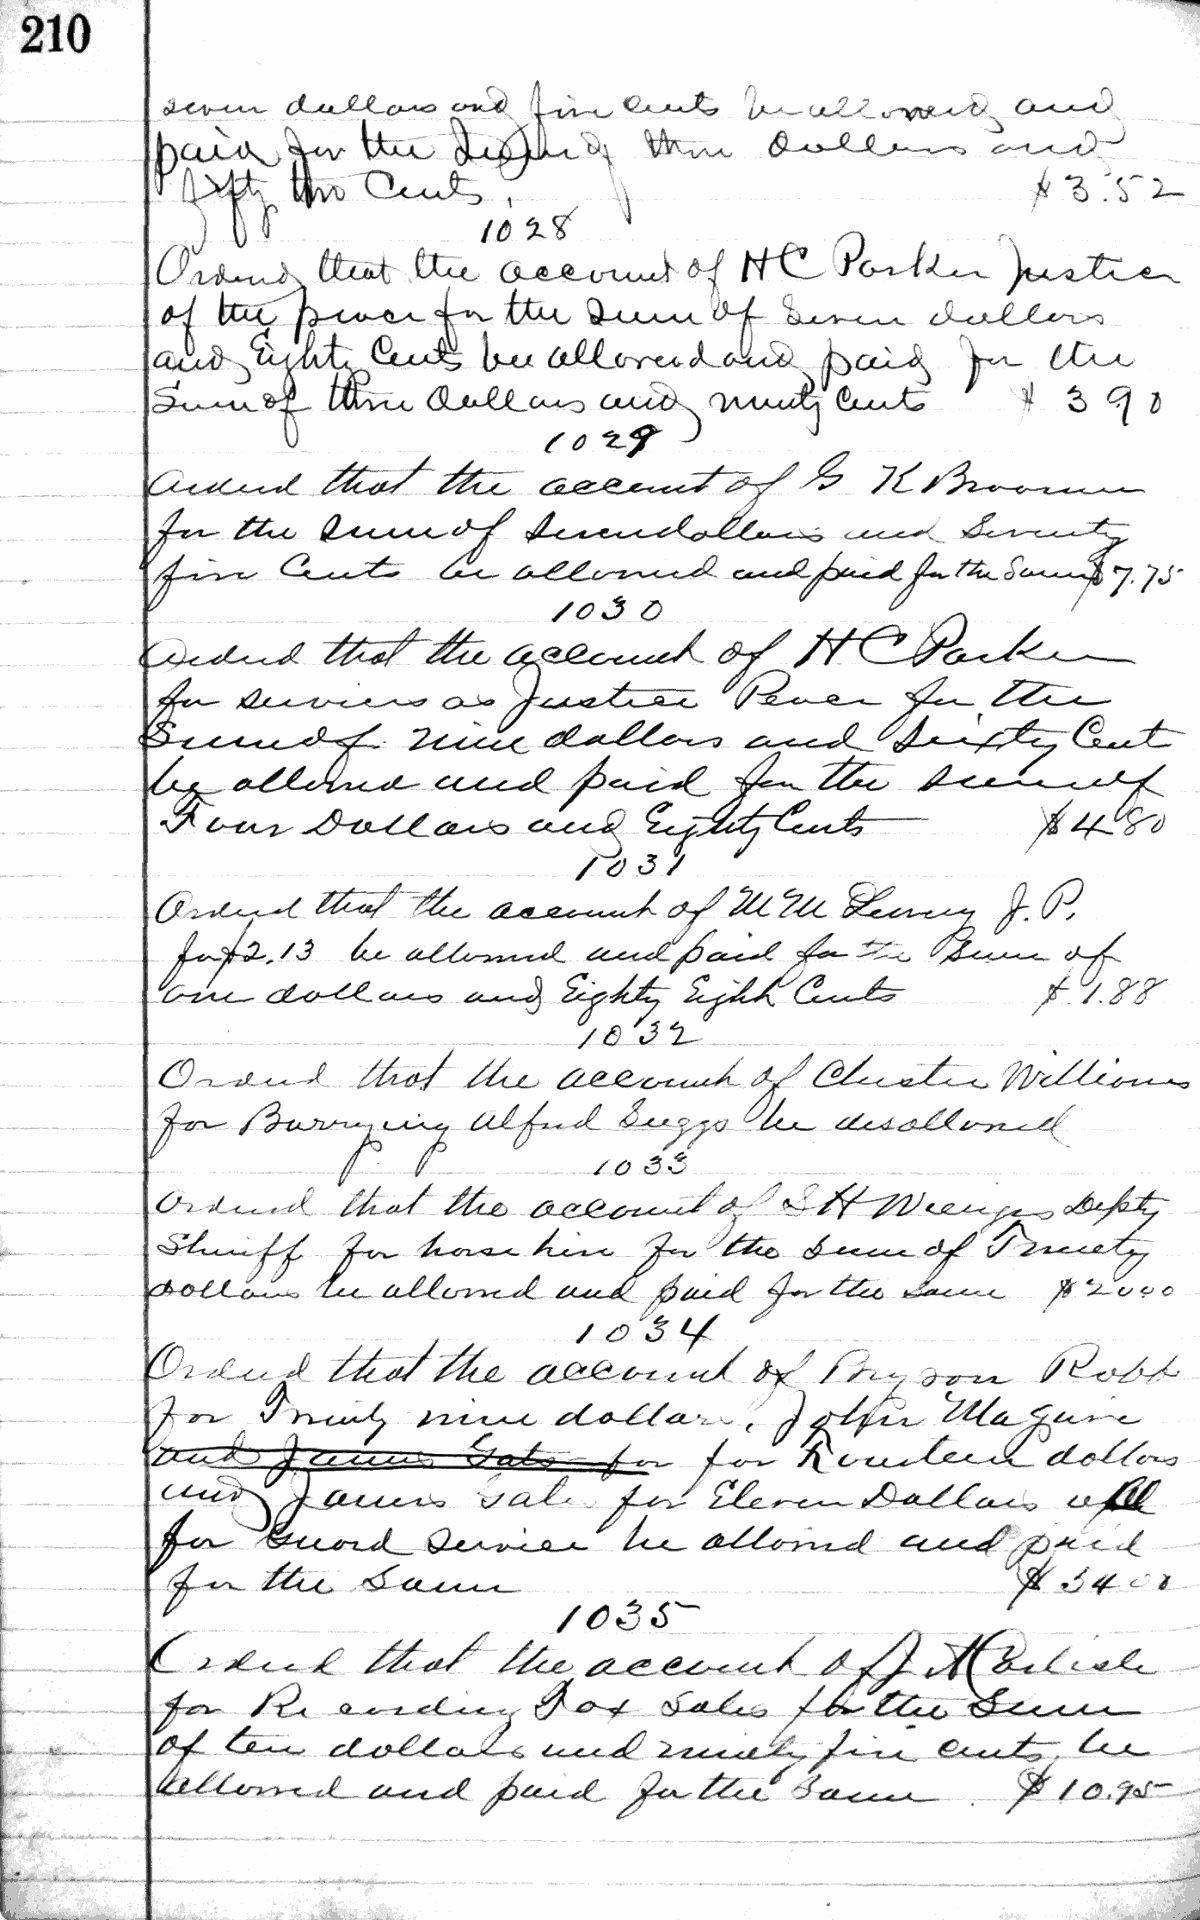 210
seven dollars and five cents be allowed and
paid for the Sum of three Dollars and
fifty two Cents. $3.52
1028
Ordered that the account of H C Parker Justice
of the peace for the Sum of Seven dollars
and Eighty Cents be allowed and paid for the
Sum of three Dollars and ninety Cents $ 3 90
1029
Ordered that the account of G K
for the Sum of Seven dollars and Seventy
five Cents be allowed and paid for the Same $7.75
1030
Ordered that the account of H C Parker
for services as Justice Peace for the
Sum of nine dollars and Sixty Cent
be allowed and paid for the sum of
Four Dollars and Eighty Cents $4 80
1031
Ordered that the account of M M J. P.
for $2.13 be allowed and paid for the Sum of
one dollars and Eighty Eight Cents $ 1.88
1032
Ordered that the account of Chester Williams
for Burrying Alfred Suggs be disallowed
1033
Ordered that the account of S H Depty
Sheriff for horse hire for the sum of Twenty
dollars be allowed and paid for the same $2000
1034
Ordered that the account of Bryson Robb
for Twenty nine dollars, John Maguire
and James Gate for for Fourteen dollars
and James Gate for Eleven Dollars all
for Guard Service be allowed and paid
for the Same $ 54 00
1035
Ordered that the account of J A Carlisle
for Recording Tax Sales for the Sum
of ten dollars and ninety five cents be
allowed and paid for the Same $10.95